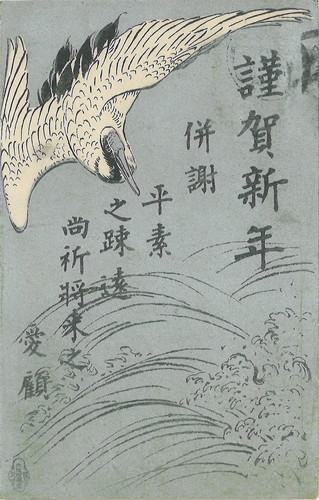 謹賀新年
併謝
平素
之踈遠
尚祈將来之
愛顧